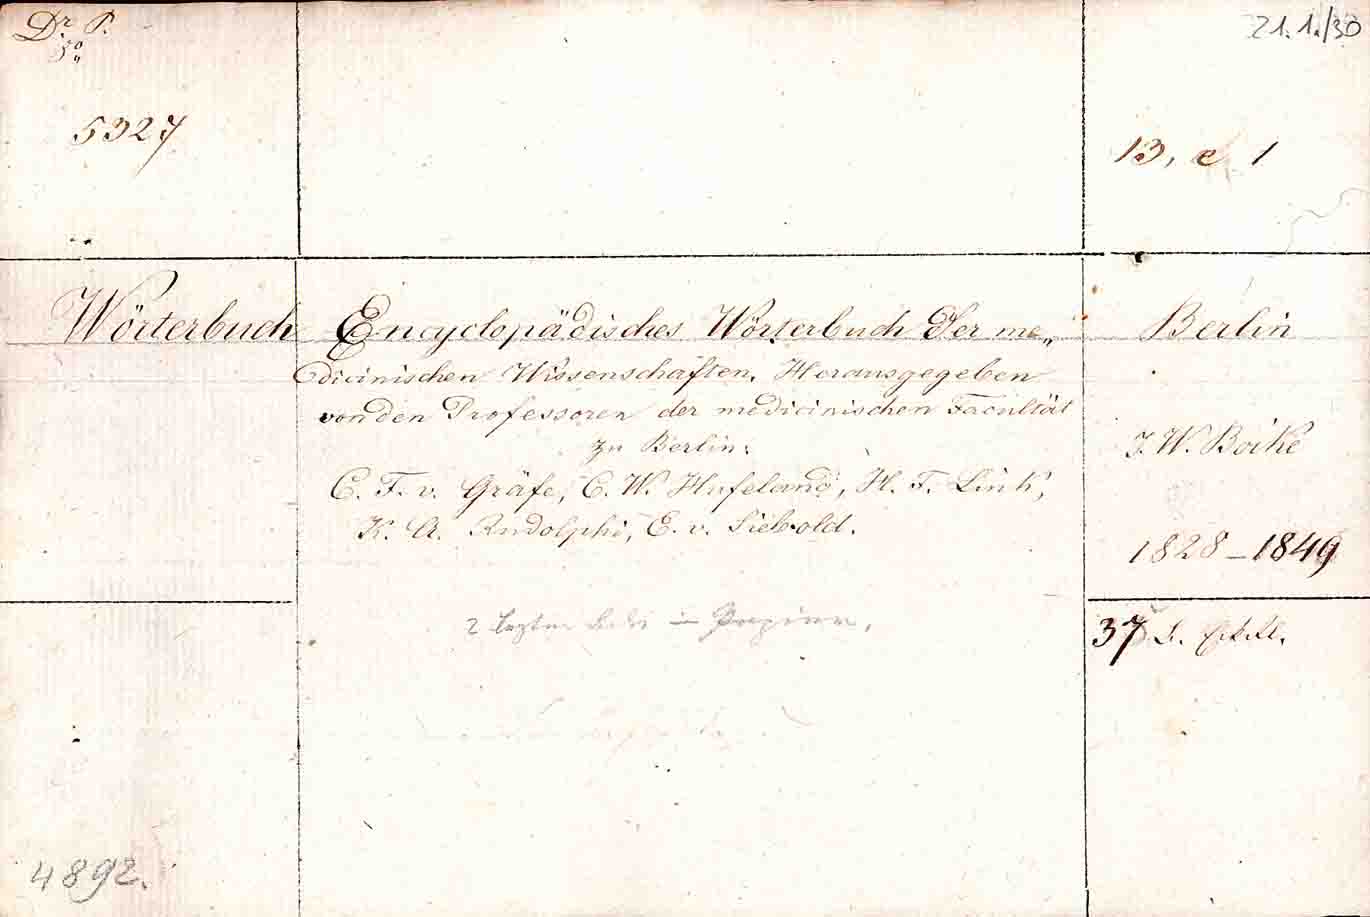 Dr. P.
50
21.1./30
5327
13, e 1
Wörterbuch
Encyclopädisches Wörterbuch der me„
dicinischen Wissenschaften. Herausgegeben
von den Professoren der medicinischen Facultät
zu Berlin:
C. F. v. Gräfe, C. W. Hufeland, H. F. Link,
K. A. Rudolphi, E. v. Siebold.
Berlin
J. W. Boike
1828-1849
2 letzten in Papier.
37
4892.